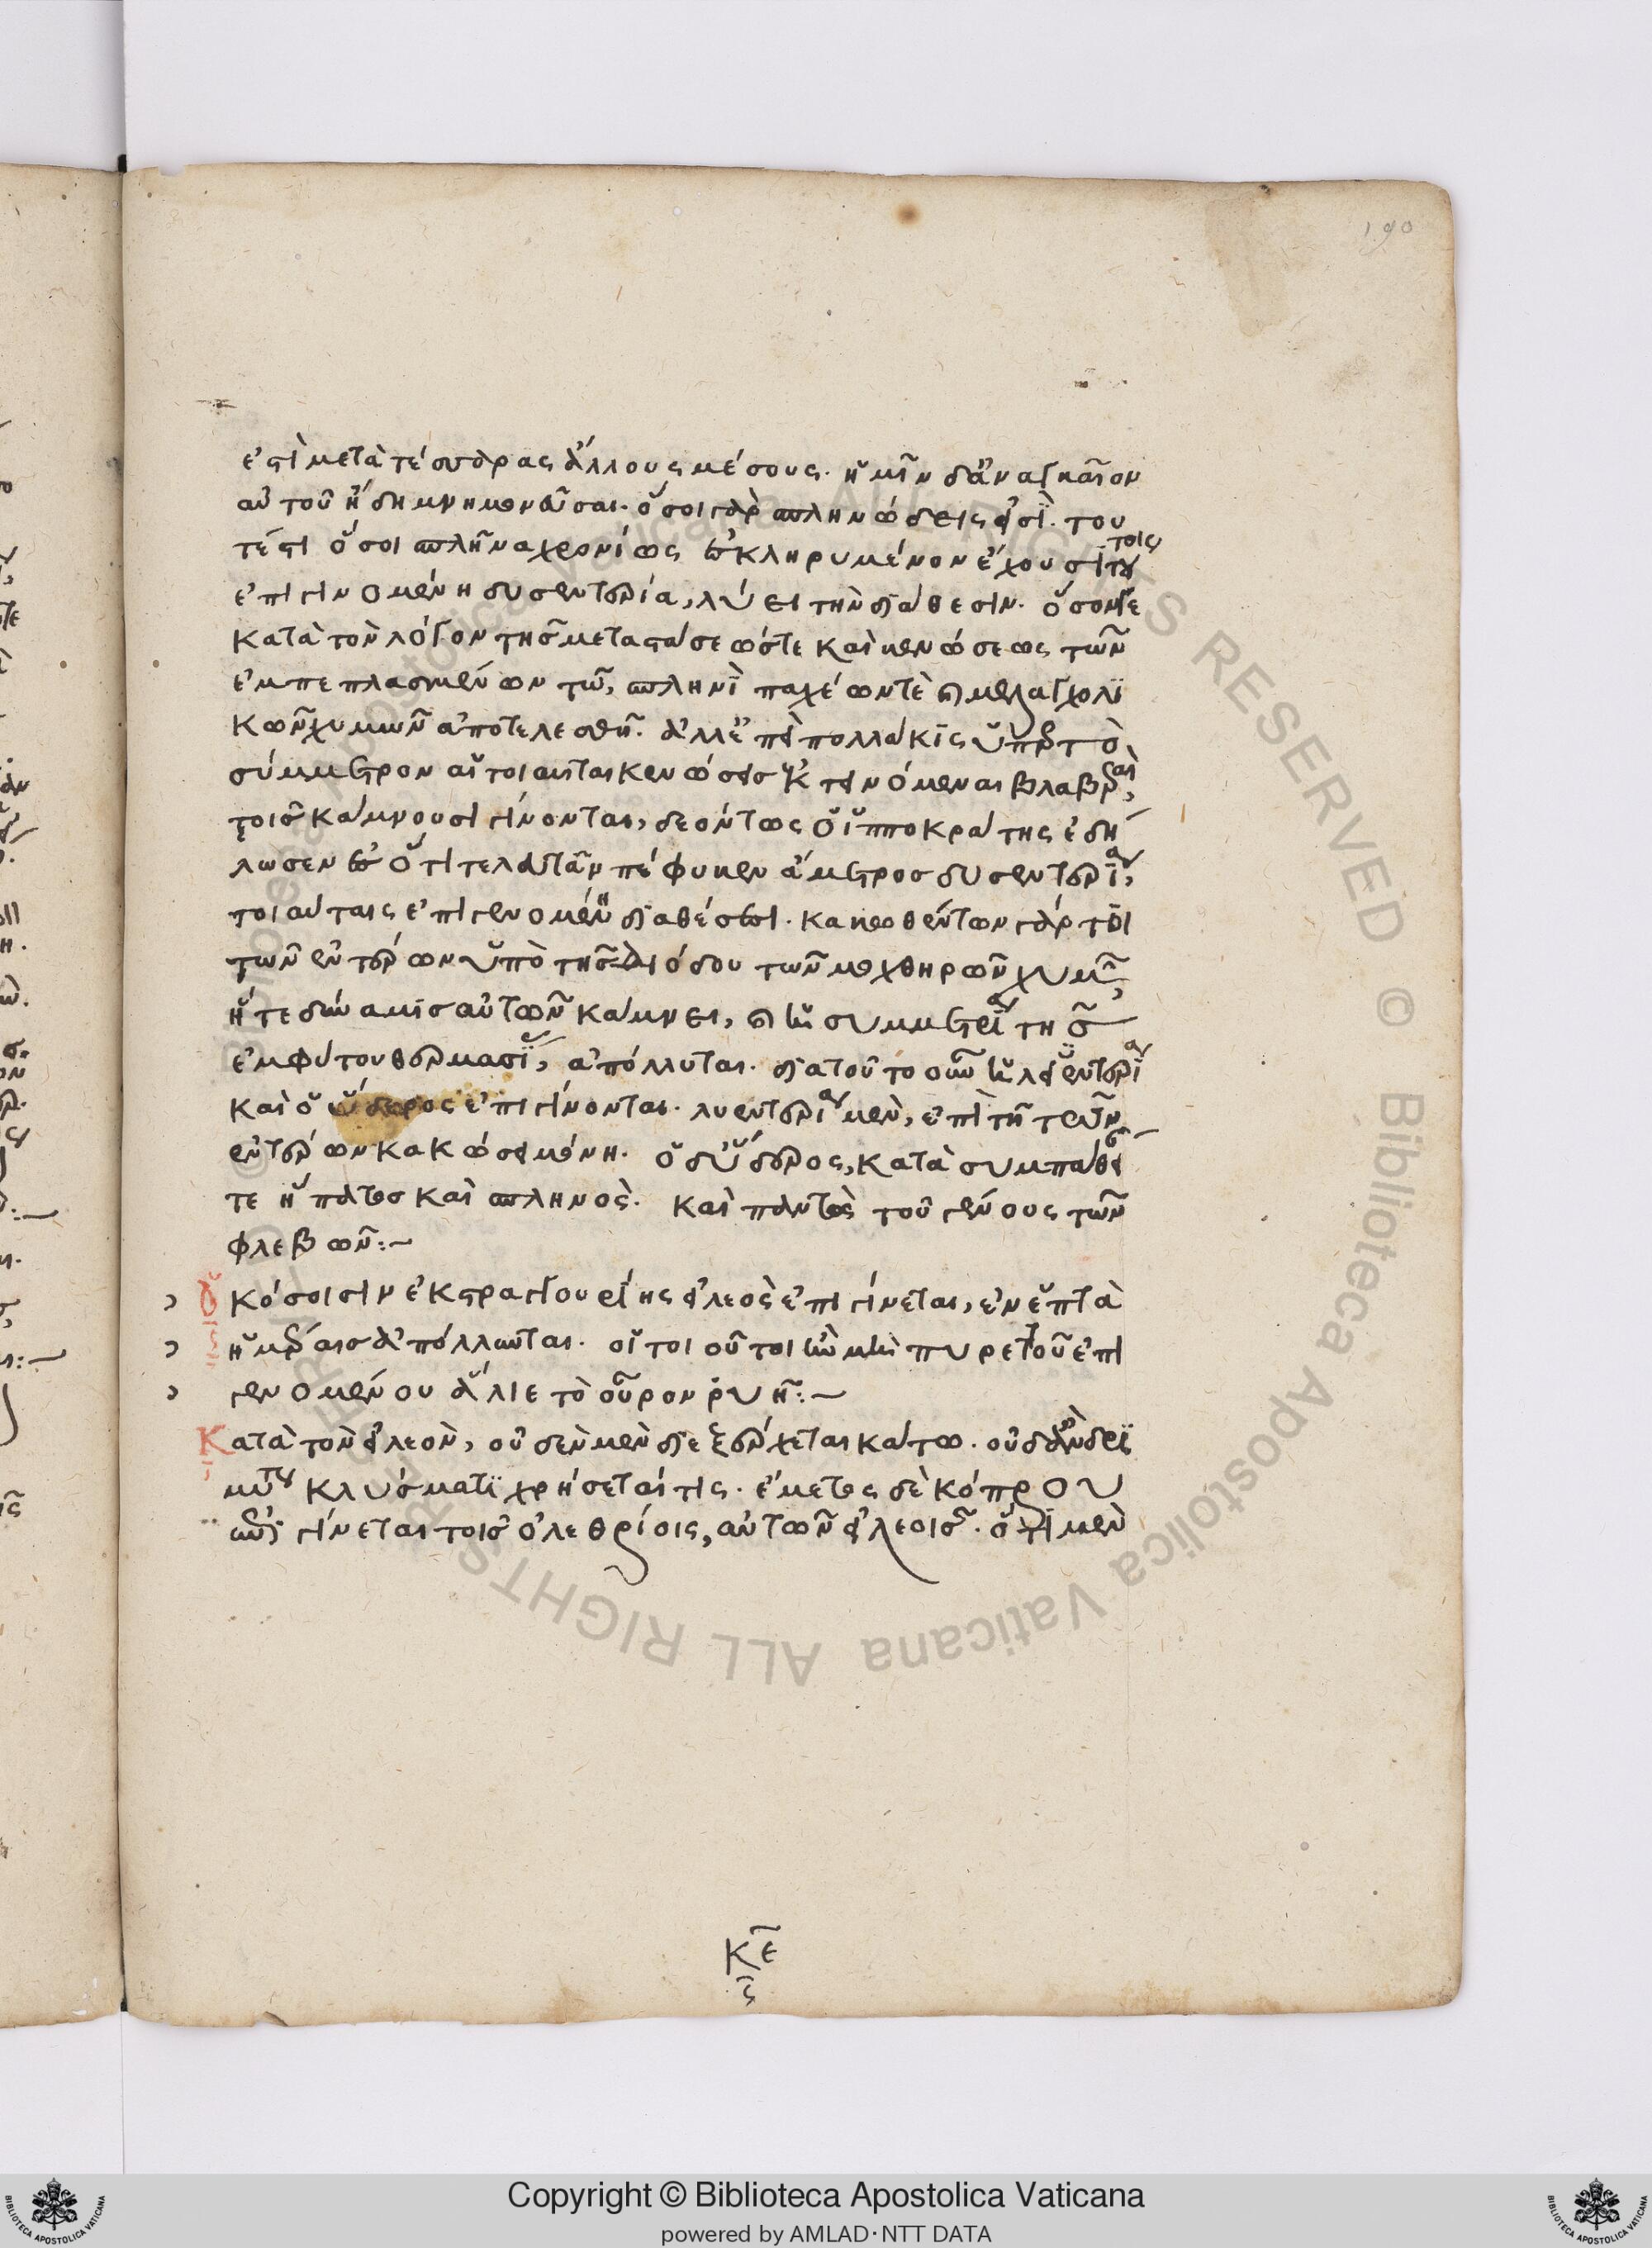 190
ἐστὶ μετὰ τέσσαρας ἄλλους μέσους. ἡμῖν δ' ἀναγκαῖον
αὐτοῦ ἤδη μνημονεῦσαι. ὅσοι γὰρ σπληνώδεις εἰσὶ. του
τέστι ὅσοι σπλῆνα χρονίως ἐσκληρυμένον ἔχουσι τούτοις
ἐπιγινομένη δυσεντερία, λύει τὴν διάθεσιν. ὅσον γε
κατὰ τὸν λόγον τῆς μεταστάσεώς τε καὶ κενώσεως τῶν
ἐμπεπλασμένων τῶ, σπληνὶ παχέων τὲ καὶ μελαγχολι
κῶν χυμῶν ἀποτελεσθῆ. ἀλλ' ἐπεὶ πολλάκις ὑπὲρ τὸ
σύμμετρον αἱ τοιαῦται κενώσεις ἐκτεινόμεναι βλαβεραὶ,
τοῖς κάμνουσι γίνονται, δεόντως ὁ ἱπποκράτης ἐδή
λωσεν ἐς ὅτι τελευτᾶν πέφυκεν ἄμετρος δυσεντερία,
τοιαύταις ἐπιγενομένη διαθέσεσι. κακωθέντων γάρ τοι
τῶν ἐντέρων ὑπὸ τῆς διόδου τῶν μοχθηρῶν χυμῶν,
ἥ τε δύναμις αὐτῶν κάμνει, καὶ ἡ συμμετρία τῆς
ἐμφύτου θερμασίας, ἀπόλλυται. διατοῦτο οὖν ἡ λειεντερία
καὶ ὁ ὕδερος ἐπιγίνονται. λυεντερία μὲν, ἐπὶ τῆ τῶν
ἐντέρων κακώσει μόνη. ὁ δ' ὕδερος, κατὰ συμπάθειαν
τε ἥπατος καὶ σπληνὸς. καὶ παντὸς τοῦ γένους τῶν
φλεβῶν:~
Ὁκόσοισιν ἐκ στραγγουρίης εἰλεὸς ἐπιγίνεται, ἐν ἑπτὰ
ἡμέραις ἀπόλλυνται. οἵτοι οὗτοι ἢν μὴ πυρετοῦ ἐπι
γενομένου ἅλις τὸ οὖρον ῥυῆ:~
Κατὰ τὸν εἰλεὸν, οὐδὲν μὲν διεξέρχεται κάτω. οὐδ' ἂν δρι
μυτάτω κλύσματι χρήσεταί τις. ἔμετος δὲ κόπρου
γίνεται τοῖς ὀλεθρίοις, αὐτῶν εἰλεοῖς. ὅτι μὲν
κε